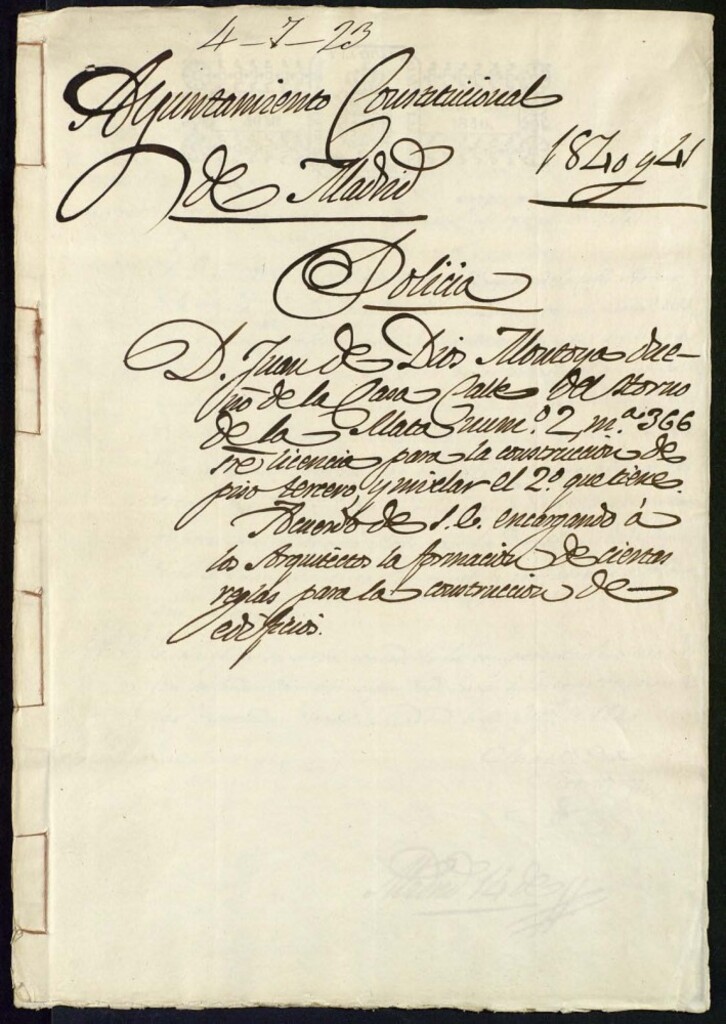 4-7-23
Ayuntamiento Constitucional
de Madrid
1840 y 41
Policia
D. Juan de Dios Montoya due-
ño de la Casa Calle del Horno
de la Mata num.º 2, m.ª 366
sre licencia para la construccion de
piso tercero, y nivelar el 2.º que tiene.
Acuerdo de S.E. encargando á
los Arquitectos la formacion de ciertas
reglas para la construccion de
edificios.